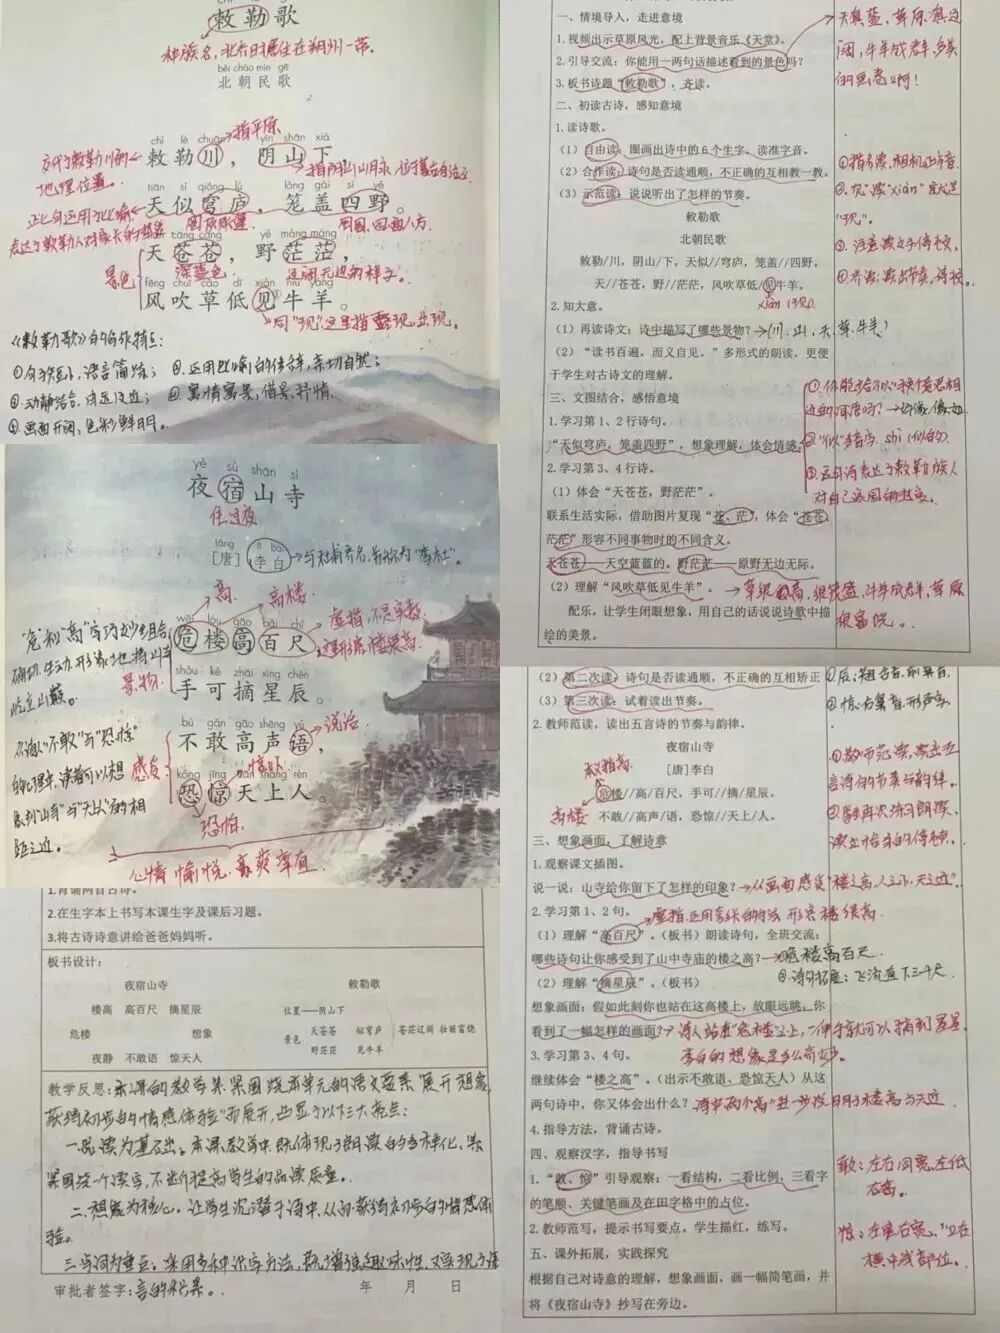 敕勒歌
种族名,北齐时居住在朔州一带。
běi cháo mín gē
北朝民歌
chì lè chuān yīn shān xià
指平原
敕勒川，阴山下，
交代了敕勒川的
地理位置。
tiān sì qióng lú lǒng gài sì yě
天似穹庐，笼盖四野。
天苍苍，野茫茫，
深蓝色
辽阔无边的样子。
景色
fēng chuī cǎo dī xiàn niú yáng
风吹草低见牛羊。
同"现",这里指露现,出现。
《敕勒歌》的写作特点:
①句子短小,语言简练;
②运用比喻的修辞,亲切自然;
③动静结合,由远及近;
④寓情寓景,借景抒情。
⑤画面开阔,色彩鲜明。
yè sù shān sì
夜宿山寺
住,过夜
táng lǐ bái
[唐]李白
与杜甫齐名,并称为"李杜"。
高
高楼
虚指,不是实数
这里形容楼很高
wēi lóu gāo bǎi chǐ
危楼高百尺，
"危"和"高"字巧妙组合,
确切、生动、形象地描山寺
屹立山巅。
景物
shǒu kě zhāi xīng chén
手可摘星辰。
bù gǎn gāo shēng yǔ
不敢高声语，
说话
从诗人"不敢"与"恐惊"
的心理中,读者可以想
象到"山寺"与"天上人"的相
距之近。
感受
惊吓
kǒng jīng tiān shàng rén
恐惊天上人。
恐怕
心情愉悦,豪爽率直
1.背诵两首古诗。
2.在生字本上书写本课生字及课后习题。
3.将古诗诗意讲给爸爸妈妈听。
板书设计：
夜宿山寺 敕勒歌
楼高 高百尺 摘星辰
危楼 想象
夜静 不敢语 惊天人
位置——阴山下
景色 天苍苍 似穹庐 苍茫辽阔 壮丽富饶
野茫茫 见牛羊
教学反思:本课的教学紧紧围绕本单元的语文要素"展开想象,
获得初步的情感体验"而展开,凸显了以下三大亮点:
一、品读为基础。本课教学中既体现了朗读的多样化,紧
紧围绕一个读字,不断提高学生的品读质量。
二、想象为核心。让学生沉潜于诗中,从而获得初步的情感体
验。
三、字词为重点。采用多种识字方法,既增强趣味性,又呈现了语
言的积累。
审批者签字： 年 月 日
一、情境导入，走进意境
1.视频出示草原风光，配上背景音乐《天堂》。
2.引导交流：你能用一两句话描述看到的景色吗？
天真蓝,草原真辽
阔,牛羊成群,多美
的画卷啊!
3.板书诗题"敕勒歌"，齐读。
二、初读古诗，感知意境
1.读诗歌。
（1）自由读：圈画出诗中的6个生字，读准字音。
（2）合作读：诗句是否读通顺，不正确的互相教一教。
（3）示范读：说说听出了怎样的节奏。
①指名读,相机正字音
②"见"读"xiàn"意思是
"现"。
③注意读文子停顿。
④齐读:读出节奏、停顿。
敕勒歌
北朝民歌
敕勒/川，阴山/下，天似//穹庐，笼盖//四野。
天//苍苍，野//茫茫，风吹草低/见牛羊。
xiàn(现)
2.知大意。
（1）再读诗文：诗中描写了哪些景物？
(川、山、天、草、牛羊)
（2）"读书百遍，而义自见。"多形式的朗读，更便
于学生对古诗文的理解。
三、文图结合，感悟意境
1.学习第1、2行诗句。
"天似穹庐，笼盖四野"，想象理解，体会情感。
①你能给"似"换个意思相
近的词语吗?→好像、像、如
②"似"多音字。shì(似的)
③这句诗表达了敕勒族人
对自己家园的热爱。
2.学习第3、4行诗。
（1）体会"天苍苍，野茫茫"。
联系生活实际，借助图片复现"苍、茫"，体会"苍苍、
茫茫"形容不同事物时的不同含义。
天苍苍——天空蓝蓝的。野茫茫——原野无边无际。
（2）理解"风吹草低见牛羊"。
草很高,很茂盛,牛羊成群,草原
很富饶。
配乐，让学生闭眼想象，用自己的话说说诗歌中描
绘的美景。
（2）第二次读：诗句是否读通顺，不正确的互相矫正
（3）第三次读：试着读出节奏。
2.教师范读，读出五言诗的节奏与韵律。
夜宿山寺
[唐]李白
本义指高
危楼//高/百尺，手可//摘/星辰。
高楼
不敢//高声/语，恐惊//天上/人。
①教师范读,读出五
言诗的节奏与韵律。
②学生再次练习朗读,
读出恰当的停顿。
三、想象画面，了解诗意
1.观察课文插图。
说一说：山寺给你留下了怎样的印象？
从画面感受"楼之高,人之小,天之近"。
2.学习第1、2句。
虚指,运用夸张的方法,形容楼很高
（1）理解"高百尺"。（板书）朗读诗句，全班交流：
哪些诗句让你感受到了山中寺庙的楼之高？
①危楼高百尺
②诗句拓展:飞流直下三千尺
（2）理解"摘星辰"。（板书）
想象画面：假如此刻你也站在这高楼上，放眼远眺，你
看到了一幅怎样的画面？
诗人站在"危楼"之上,一伸手就可以摘到星星
李白的想象是多么奇妙。
3.学习第3、4句。
继续体会"楼之高"。（出示不敢语、恐惊天人）从这
两句诗中，你又体会出什么？
4.指导方法，背诵古诗。
四、观察汉字，指导书写
1."敢、惊"引导观察，一看结构，二看比例，三看字
的笔顺、关键笔画及在田字格中的占位。
敢:左右同宽,左低
右高。
2.教师范写，提示书写要点，学生描红，练写。
惊:左窄右宽。
五、课外拓展，实践探究
根据自己对诗意的理解，想象画面，画一幅简笔画，并
将《夜宿山寺》抄写在旁边。